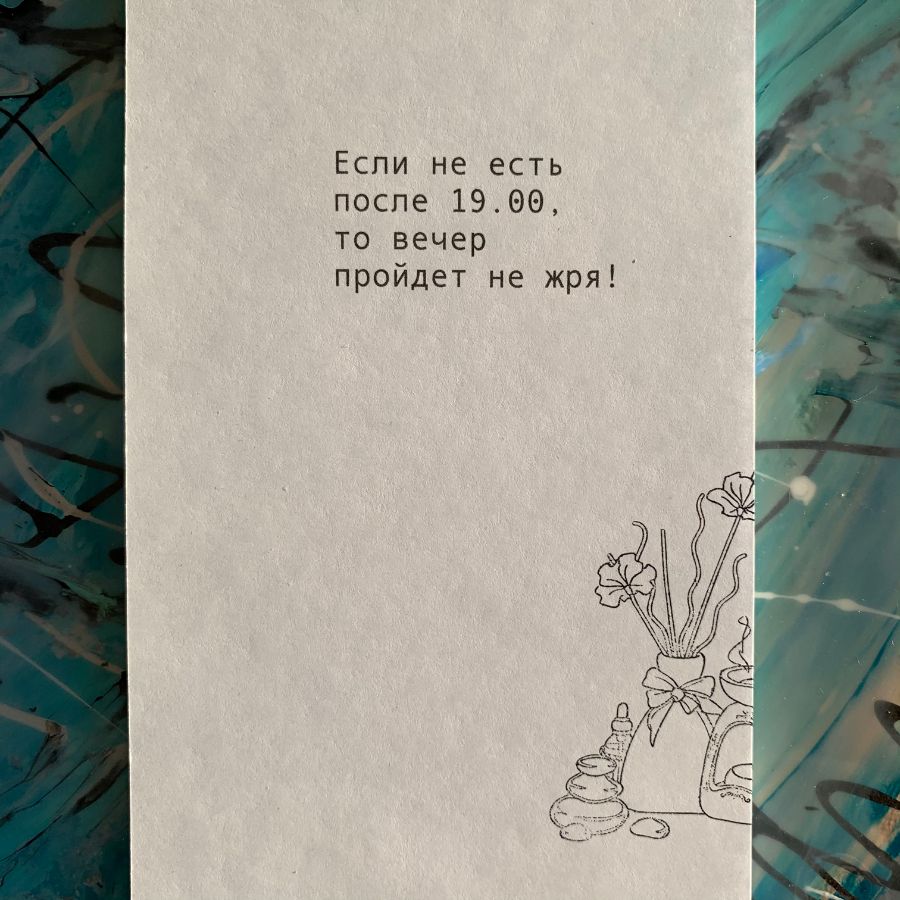 Если не есть
после 19.00,
то вечер
пройдет не жря!